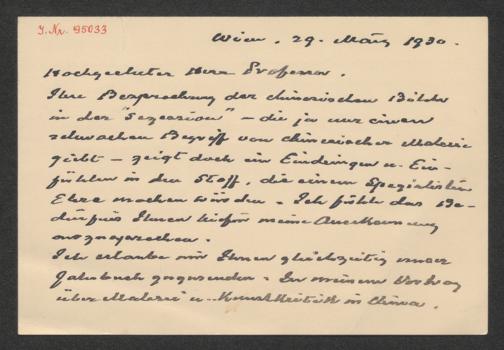 J. Nr. 95033
Wien, 29. März 1930.
Hochgeehrter Herr Professor.
Ihre Besprechung der chinesischen Bilder
in der "Sezession" – die ja nur einen
schwachen Begriff von chinesischer Malerei
gibt – zeigt doch ein Eindringen u. Ein-
fühlen in den Stoff, die einem Spezialisten
Ehre machen würden. Ich fühle das Be-
dürfnis Ihnen hiefür meine Anerkennung
auszusprechen.
Ich erlaube mir Ihnen gleichzeitig unser
Jahrbuch zuzusenden. In meinem Vortrag
über Malerei u. Kunstkritik in China.